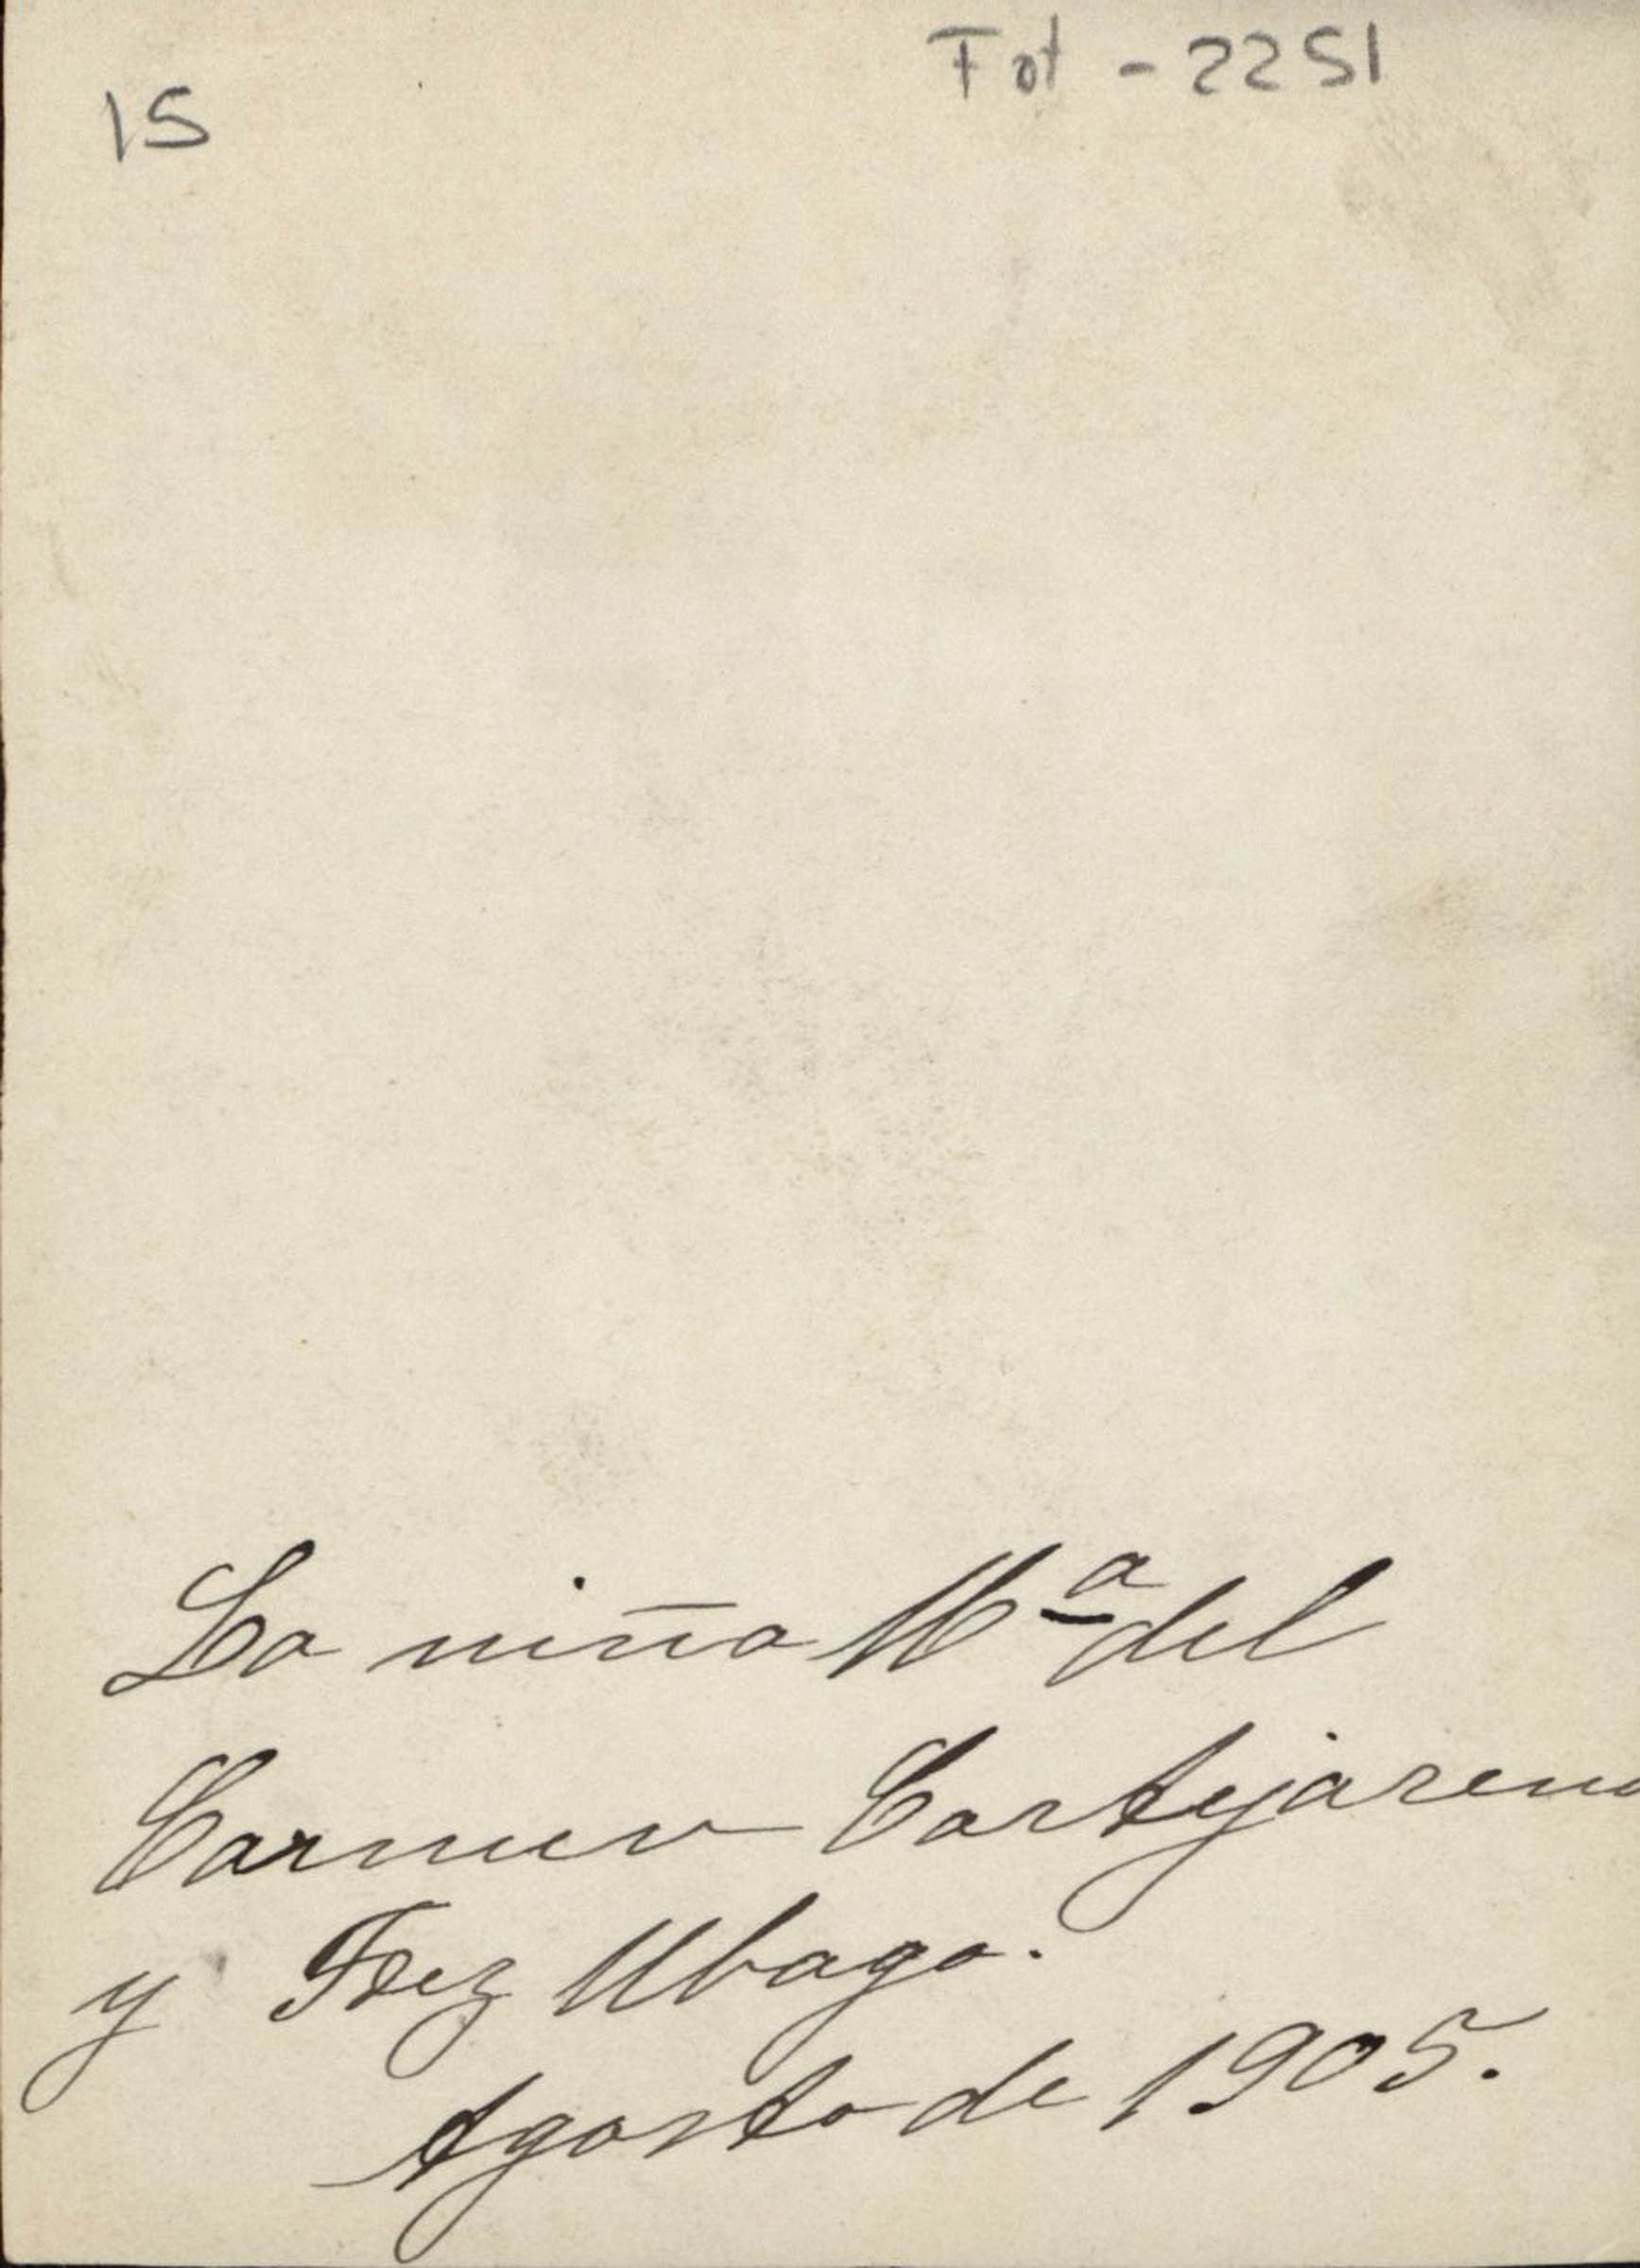 Fot - 2251
15
La niña Mª del
Carmen Cortejarena
y Fdez Ubago.
Agosto de 1905.